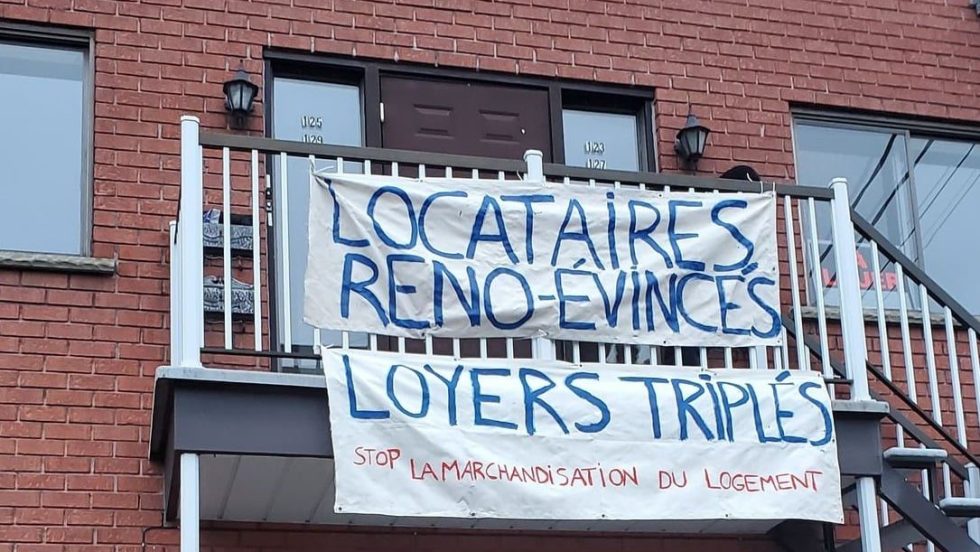 125
129
123
127
LOCATAIRES
RENO-ÉVINCÉS
À
LOUER
LOYERS TRIPLÉS
STOP LA MARCHANDISATION DU LOGEMENT